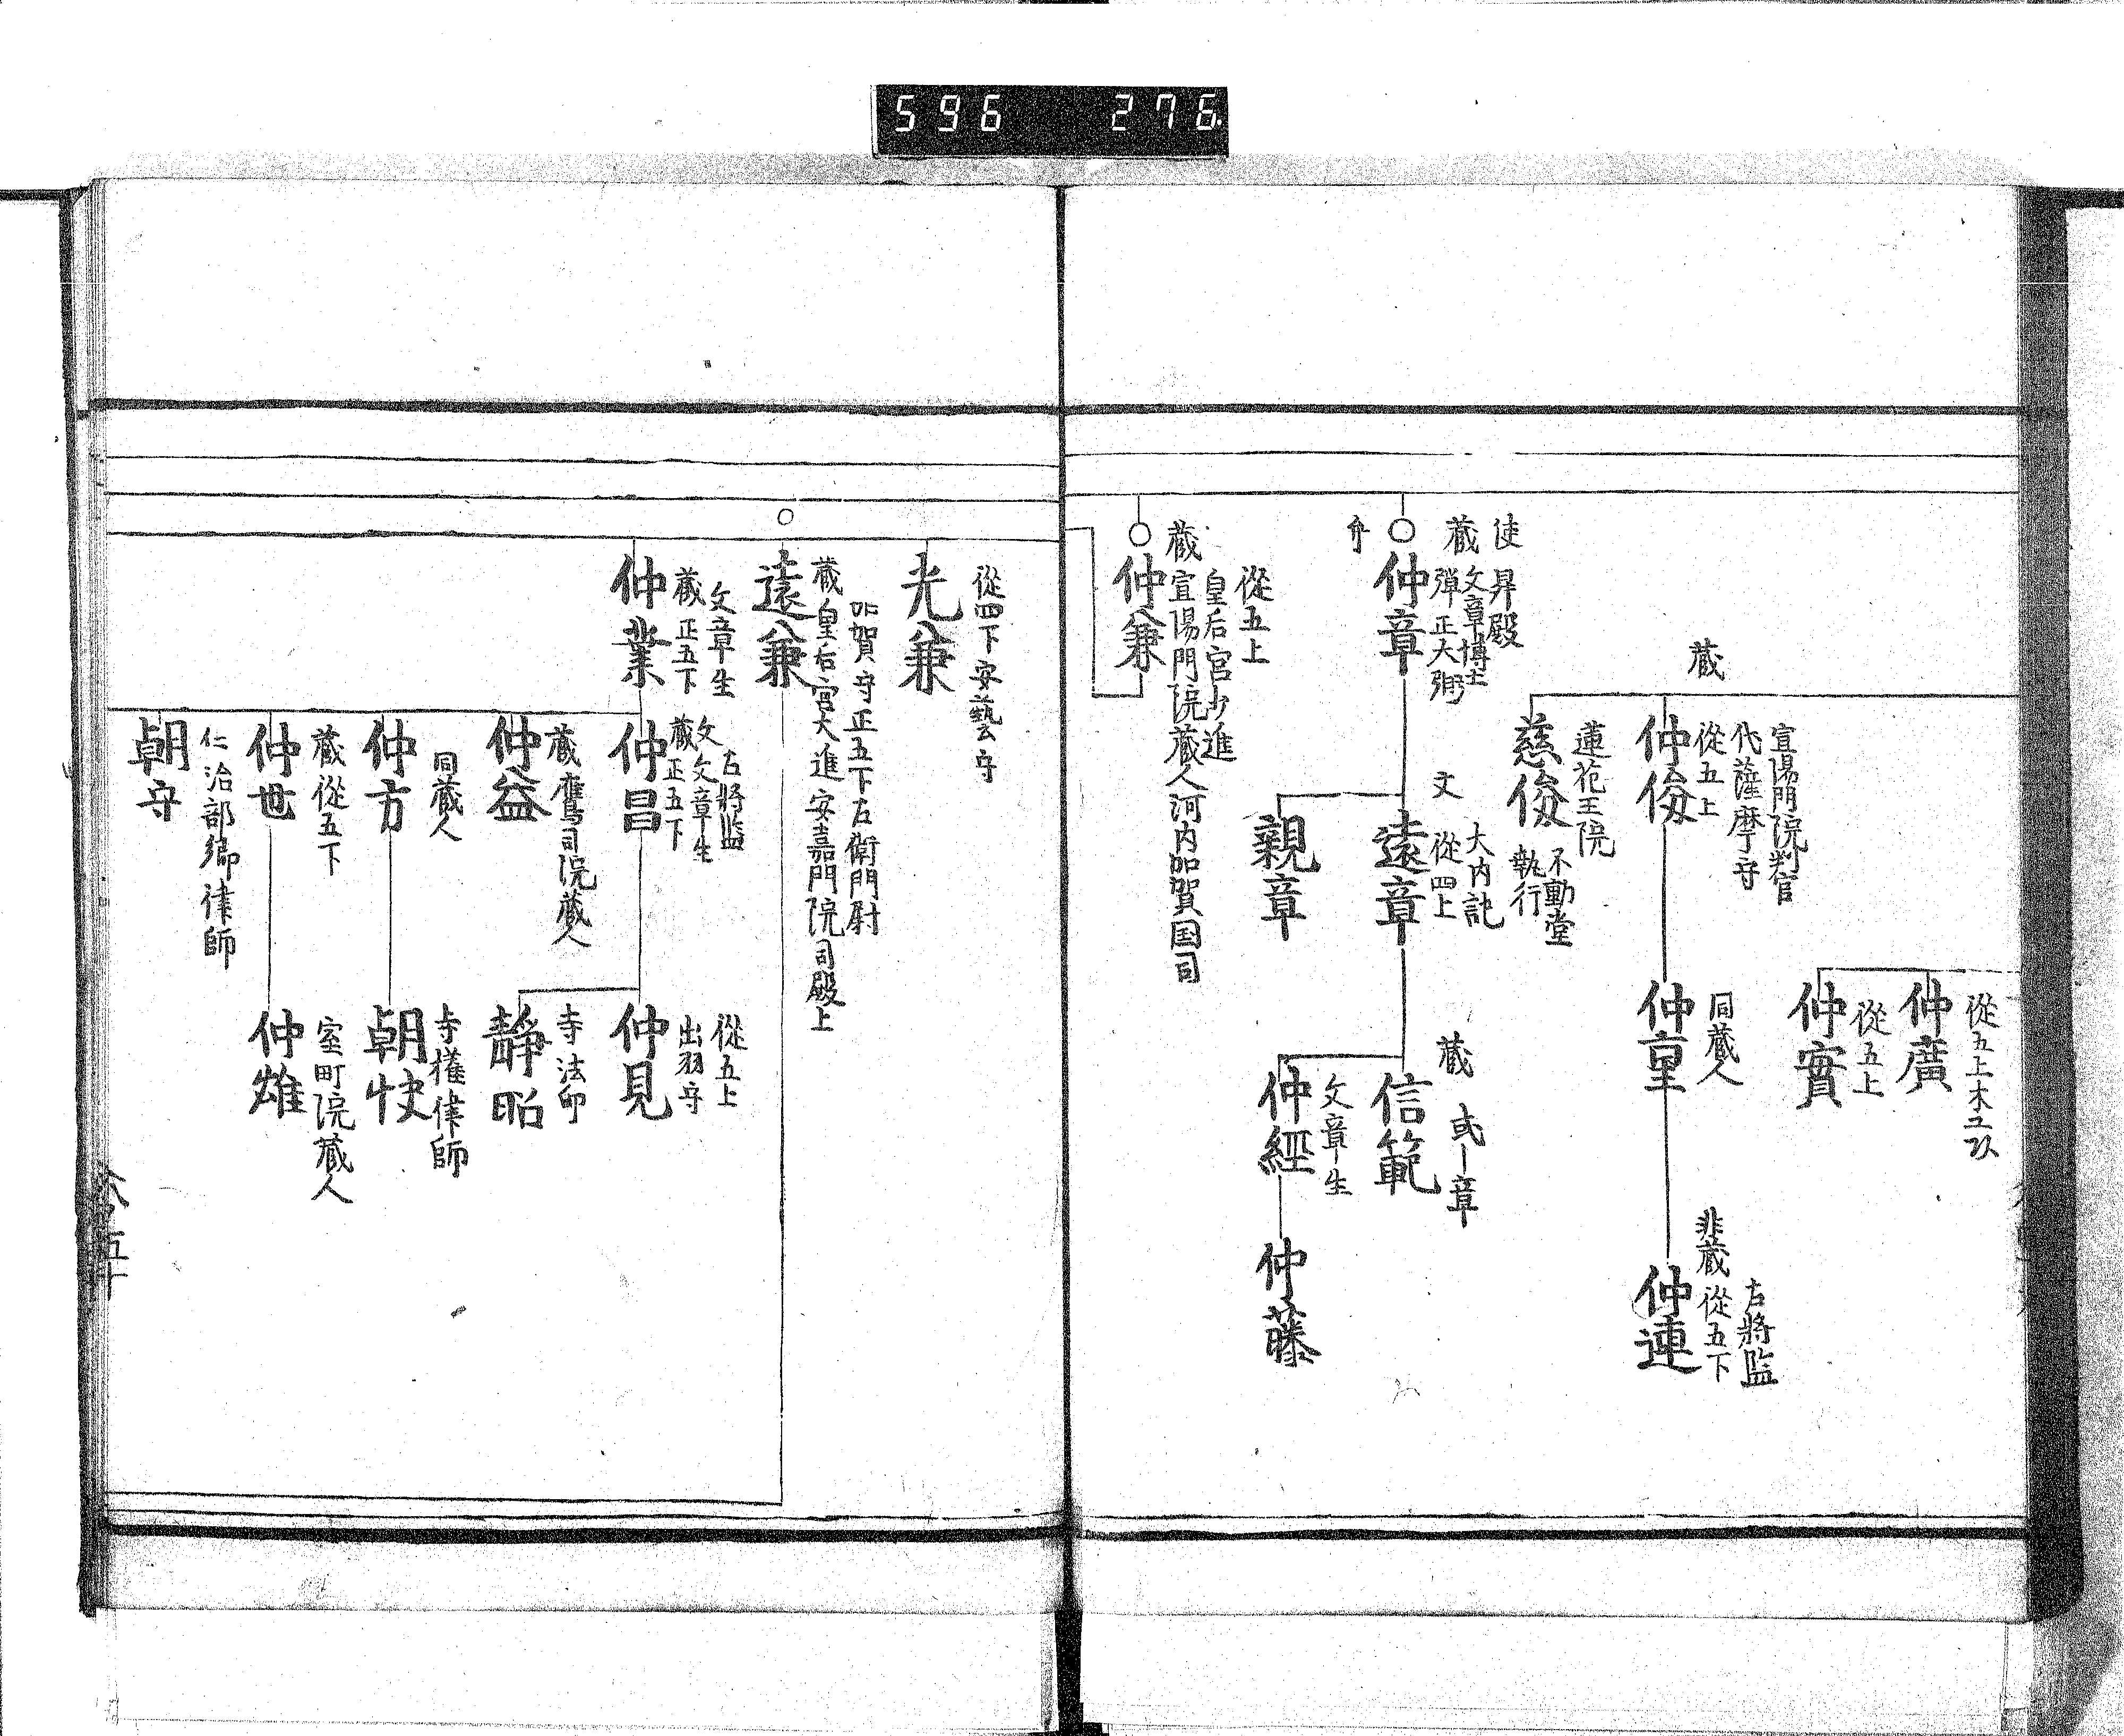 596 276
從五上木工以
仲廣
從五上
仲實
蔵
宣陽門院判官
代薩摩守
從五上
仲俊
同蔵人
仲重
古將監
非蔵從五下
仲連
蓮花王院
不動堂
執行
慈俊
使昇殿
蔵文章博士
彈正大弼
仲章
文
大内記
從四上
遠章
親章
蔵
或章
信範
文章生
仲經
仲藤
從五上
皇后宮少進
蔵宣陽門院蔵人河内加賀国司
仲兼
從四下安藝守
光兼
加賀守正五下左衛門尉
蔵皇后宮大進安嘉門院司殿上
遠兼
文章生
蔵正五下
仲業
右將監
文文章生
蔵正五下
仲昌
從五上
出羽守
仲見
寺法印
靜昭
蔵鷹司院蔵人
仲益
同蔵人
仲方
寺權律師
朝快
蔵從五下
仲世
室町院蔵人
仲雄
仁治部卿律師
朝守